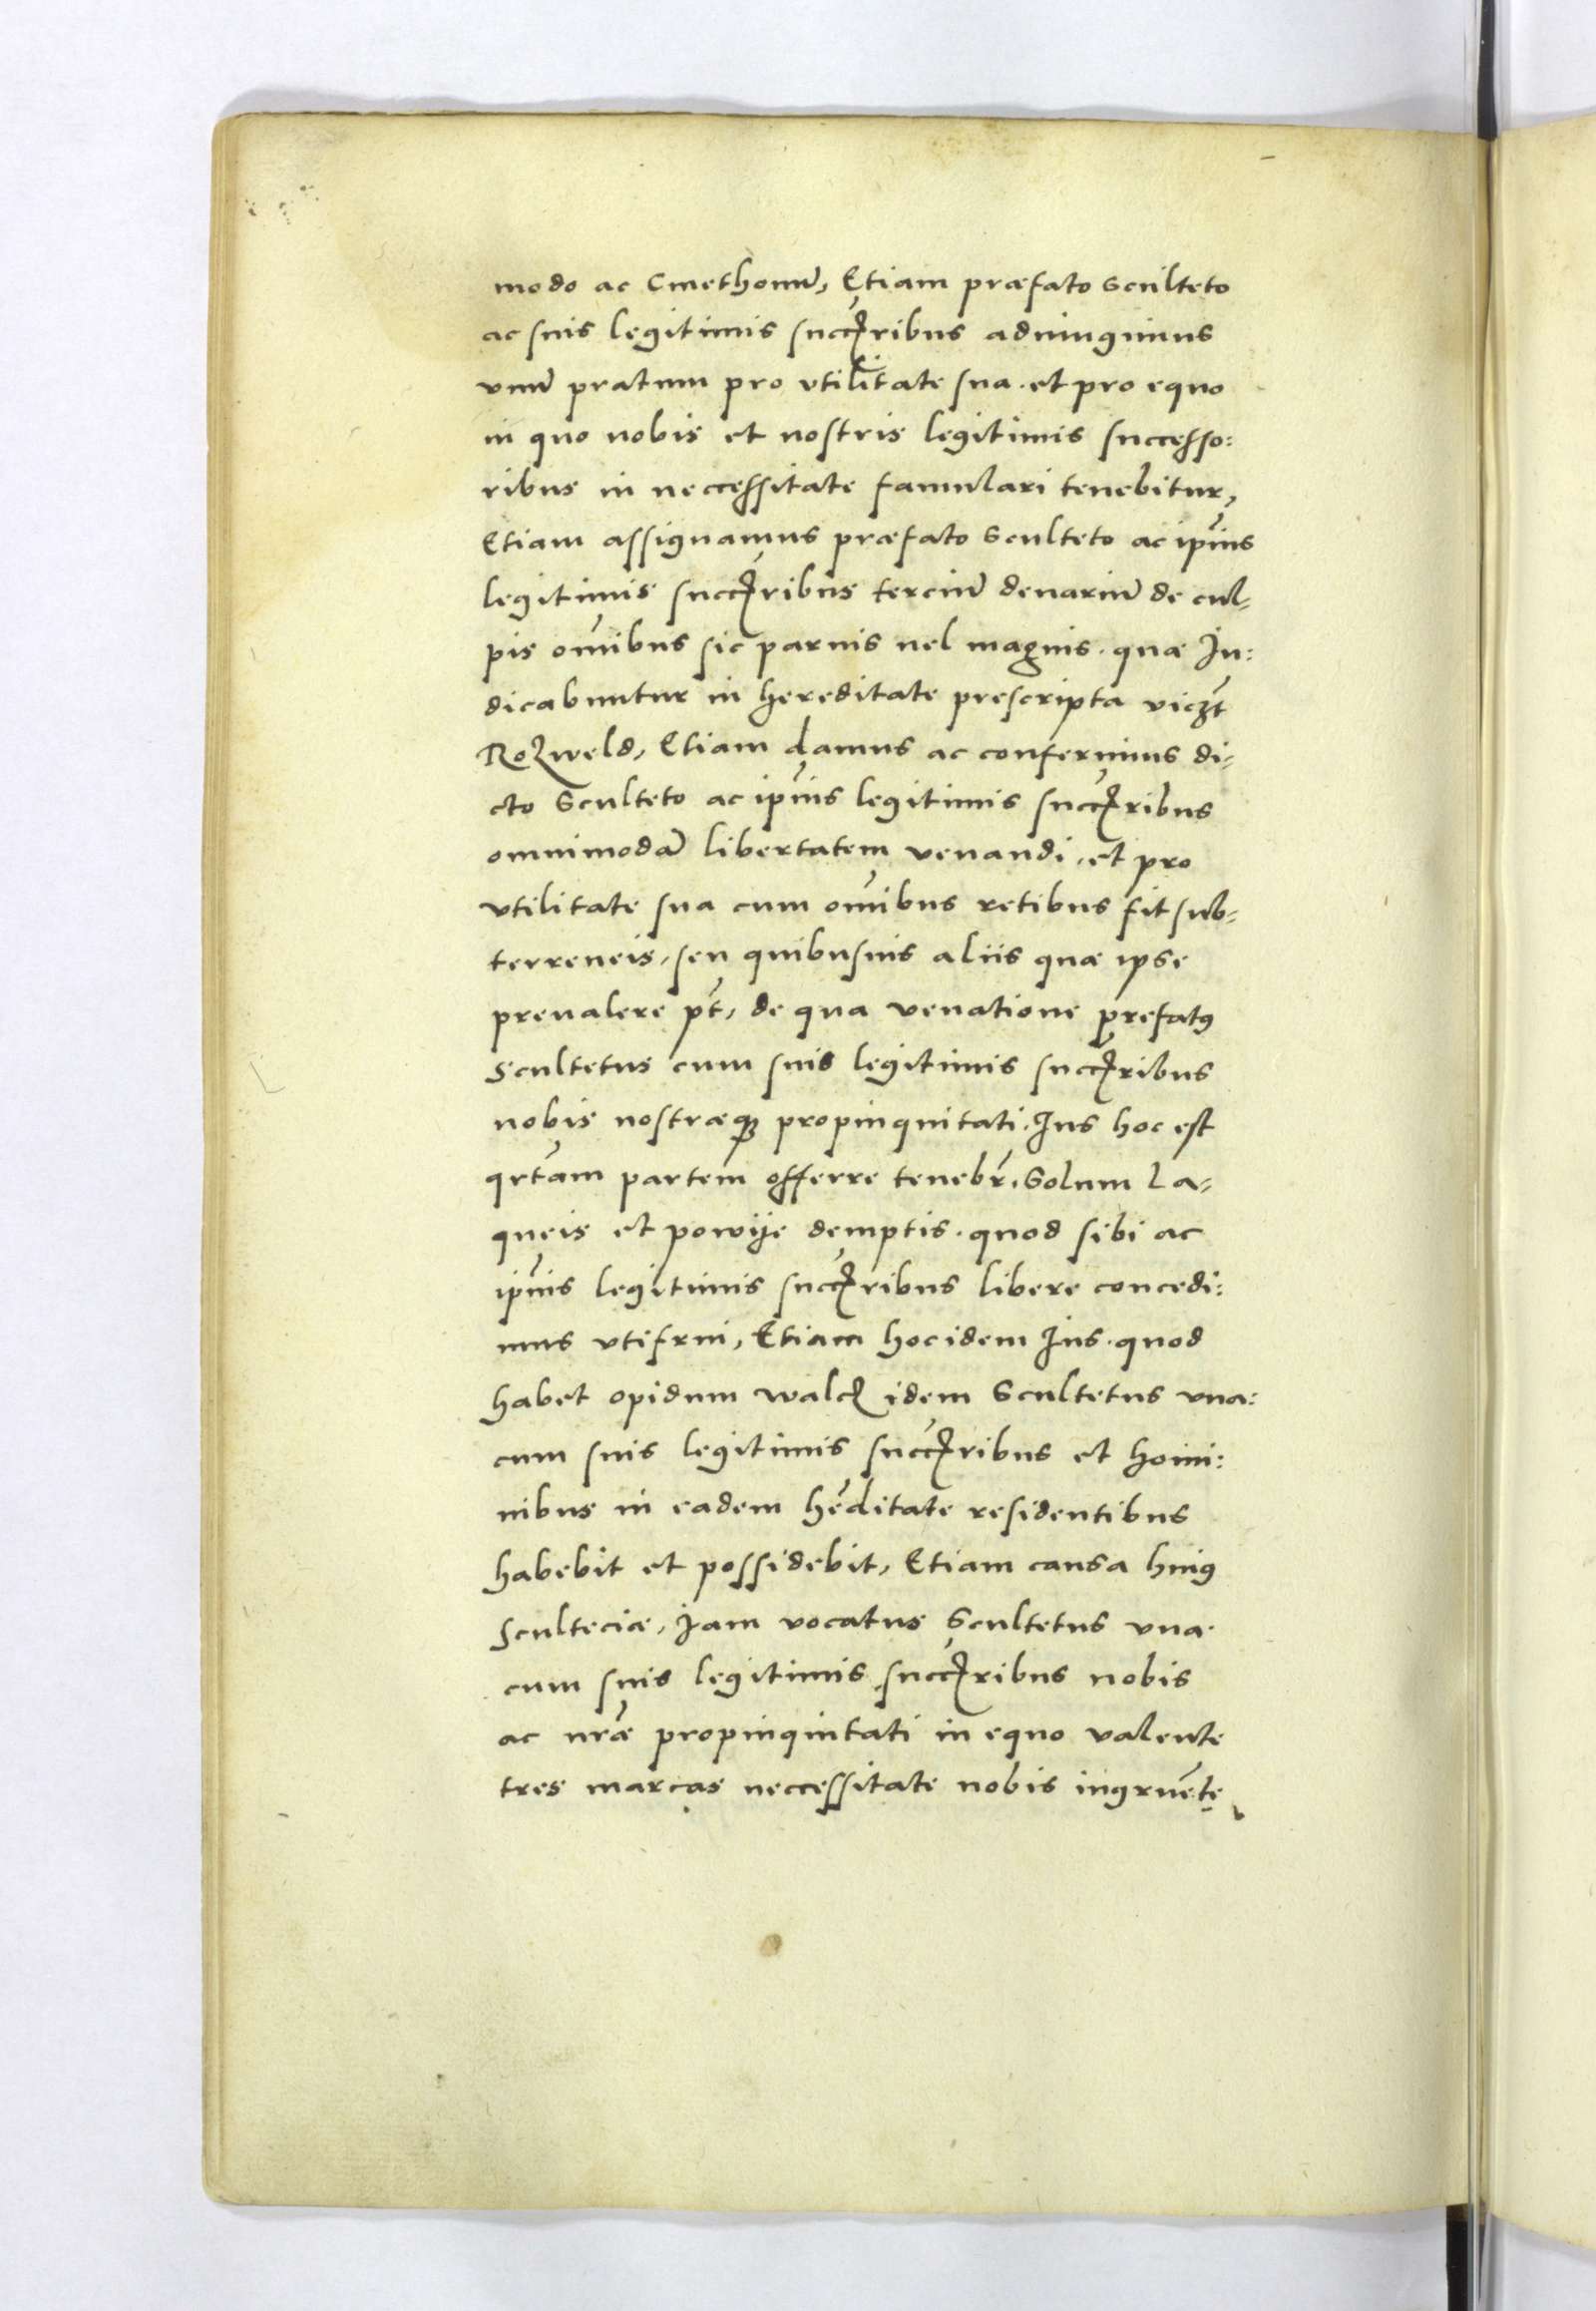 modo ac Cmethonũ, Etiam præfato Sculteto
ac suis legitimis succꝭribus adiungimus
vnũ pratum pro vtilitate sua. et pro equo
in quo nobis et nostris legitimis successo:
ribus in neccessitate famulari tenebitur,
Etiam assignamus præfato Sculteto ac ip̃ius
legitimis succꝭribus terciũ denariũ de cul-
pis om̃ibus sic paruis uel magnis. quæ Iu:
dicabuntur in hereditate prescripta vicꝫt
Rozweld, Etiam damus ac conferimus di-
cto Sculteto ac ip̃ius legitimis succꝭribus
omnimodã libertatem venandi, et pro
vtilitate sua cum om̃ibus retibus sit sub-
terreneis, seu quibusuis aliis quæ ipse
preualere pt̃, de qua venatione prefatꝰ
Scultetus cum suis legitimis succꝭribus
nobis nostræqꝫ propinquitati. Ius hoc est
qrtãm partem offerre tenebr̃. Solum la-
queis et powije demptis. quod sibi ac
ip̃ius legitimis succꝭribus libere concedi:
mus vtifrui, Etiam hoc idem Ius. quod
habet opidum walcz idem Scultetus vna:
cum suis legitimis succꝭribus et homi:
nibus in eadem hẽditate residentibus
habebit et possidebit, Etiam causa huiꝰ
Sculteciæ, Iam vocatus Scultetus vna
cum suis legitimis succꝭribus nobis
ac nr̃æ propinquitati in equo valente
tres marcas neccessitate nobis ingruẽte